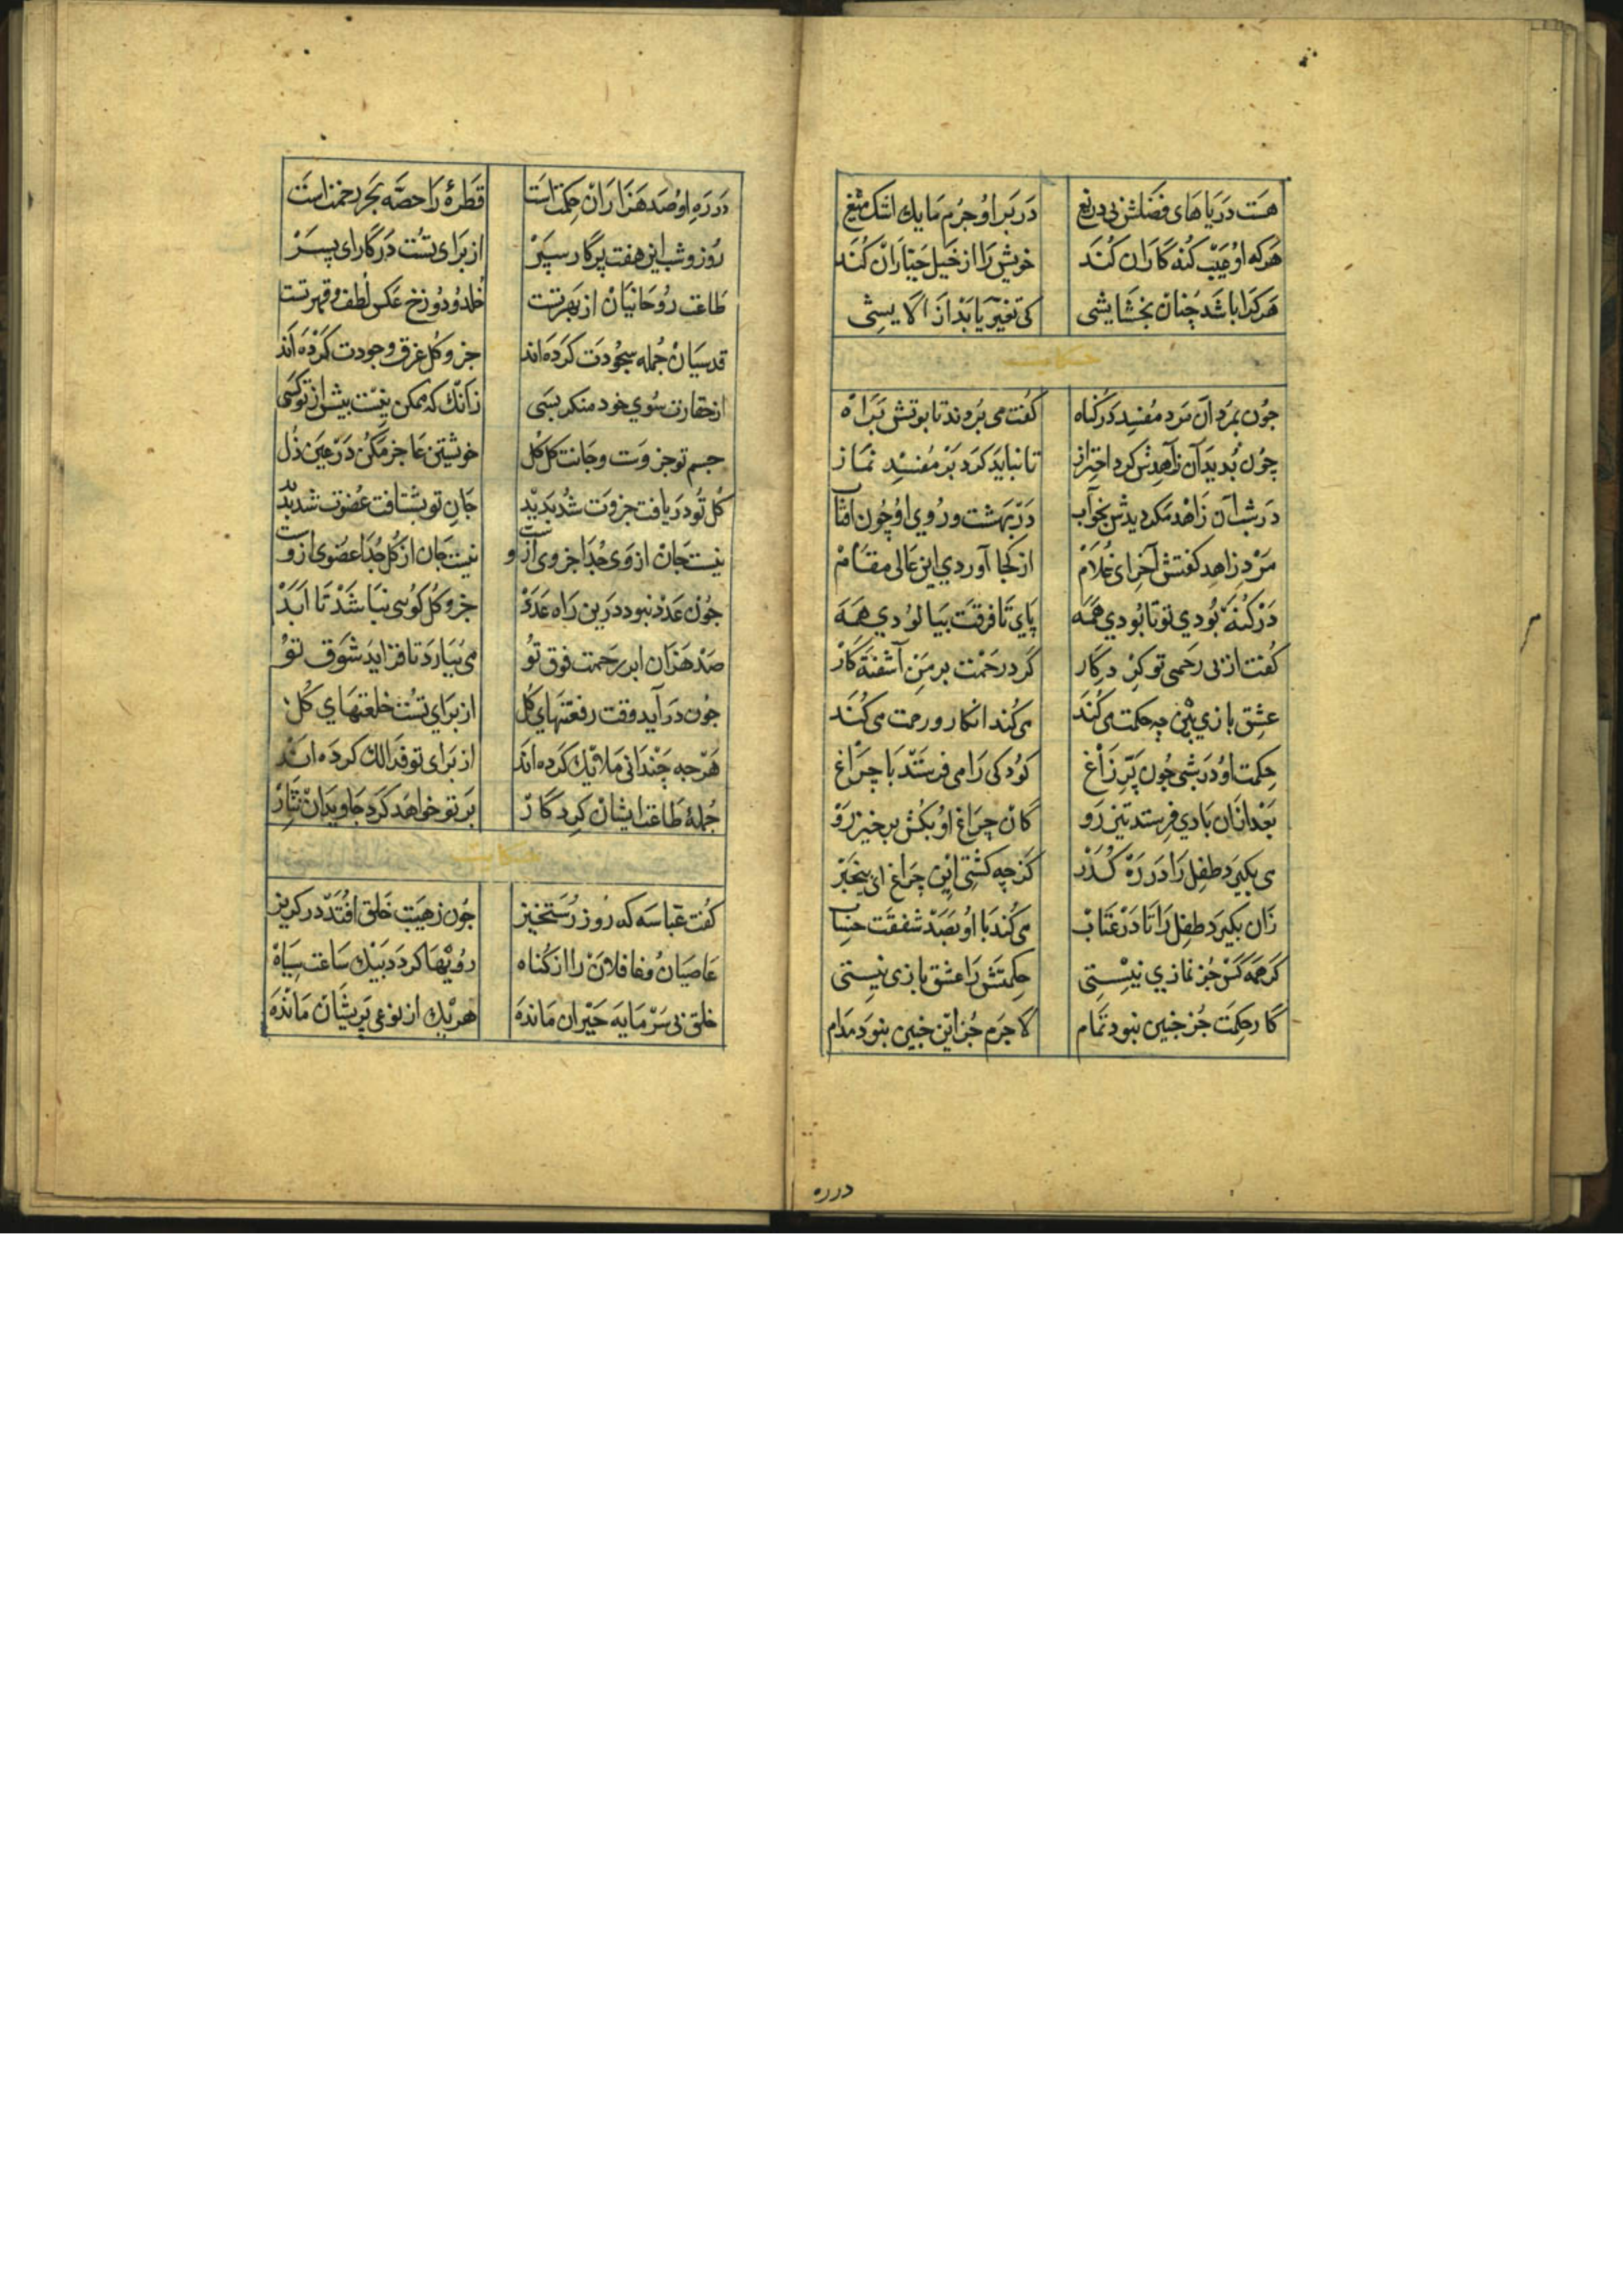 هست دریاهای فضلش بی دریغ در بر او جرم ما یک اشک میغ
هرکه او عیب کنه کاران کند خویش را از خیل جباران کند
هرکرا باشد چنان بخشایشی کی تغیر یابد از آلایشی
حکایت
چون بمرد آن مرد مفسد در کناه کفت می بردند تابوتش براه
چون بدید آن زاهدش کرد احتراز تا نباید کرد بر مفسد نماز
در شب آن زاهد مکر دیدش بخواب در بهشت و روی او چون آفتاب
مرد زاهد کفتش آخر ای غلام از کجا آوردی این عالی مقام
در کنه بودی تو تا بودی همه پای تا فرقت بیالودی همه
کفت از بی رحمی تو کردکار کرد رحمت بر من آشفته کار
عشق بازی بین چه حکمت می کند می کند انکار و رحمت می کند
حکمت او در شبی چون پر زاغ کودکی را می فرستد با چراغ
بعد ازان بادی فرستد تیز رو کان چراغ او بکش برخیز رو
می بکیرد طفل را در ره کذر کز چه کشتی این چراغ ای بیخبر
زان بکیرد طفل را تا در عتاب می کند با او بصد شفقت حساب
کر همه کس جز نمازی نیستی حکمتش را عشق بازی نیستی
کار حکمت جز جنین نبود تمام لاجرم جز این جنین نبود مدام
درره
در ره او صد هزاران حکمتست قطرهٔ را حصه بحر رحمتست
روز و شب این هفت پرکار سپر از برای تست در کار ای پسر
طاعت روحانیان از بهر تست خلد و دوزخ عکس لطف و قهر تست
قدسیان جمله سجودت کرده اند جز و کل غرق وجودت کرده اند
از حقارت سوی خود منکر بسی زانک که ممکن نیست بیش از تو کسی
جسم تو جزوت و جانت کل کل خویشتن عاجز مکن در عین ذل
کل تو دریافت جزوت شد بدید جان تو بشتافت عضوت شد بدید
نیست جان از وی جدا جزوی ازوست نیست جان از کل جدا عضوی ازوست
جون عدد نبود درین راه عدد جزو کل کوسی نباشد تا ابد
صد هزاران ابر رحمت فوق تو می ببارد تا فزاید شوق تو
جون درآید وقت رفعتهای کل از برای تست خلعتهای کل
هرجه جندانی ملایک کرده اند از برای تو فذالک کرده اند
جملهٔ طاعت ایشان کردکار بر تو خواهد کرد جاویدان نثار
حکایت
کفت عباسه که روز رستخیز جون ز هیبت خلق افتد در کریز
عاصیان و غافلان را از کناه رویها کردد بیک ساعت سیاه
خلق بی سرمایه حیران مانده هریک از نوعی پریشان مانده